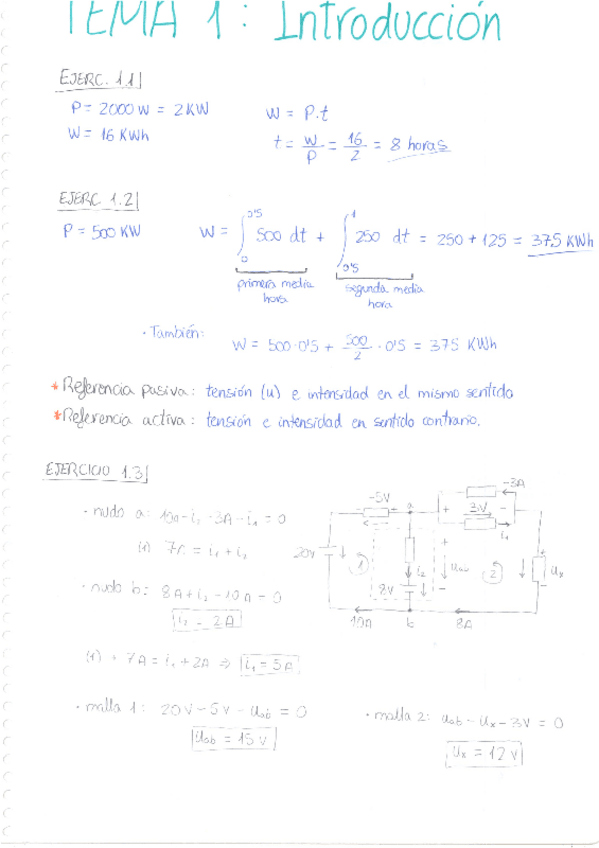 TEMA 1: Introducción
EJERC. 1.1
P = 2000 W = 2 KW
W = P.t
W = 16 KWh
t = W/P = 16/2 = 8 horas
EJERC 1.2
P = 500 KW
W = ∫₀^0'5 500 dt + ∫_0'5^1 250 dt = 250 + 125 = 375 KWh
primera media hora
segunda media hora
· También:
W = 500·0'5 + 500/2 · 0'5 = 375 KWh
* Referencia pasiva: tensión (u) e intensidad en el mismo sentido
* Referencia activa: tensión e intensidad en sentido contrario.
EJERCICIO 1.3
· nudo a: 10A - i₂ - 3A - i₁ = 0
(1) 7A = i₁ + i₂
· nudo b: 8A + i₂ - 10A = 0
i₂ = 2A
(1) → 7A = i₁ + 2A ⇒ i₁ = 5A
· malla 1: 20V - 5V - Uab = 0
Uab = 15V
· malla 2: Uab - Ux - 3V = 0
Ux = 12V
-3A
-5V
a
+ 3V -
i₁
20V
1
i₂
+
Uab
2
Ux
8V
-
10A
b
8A